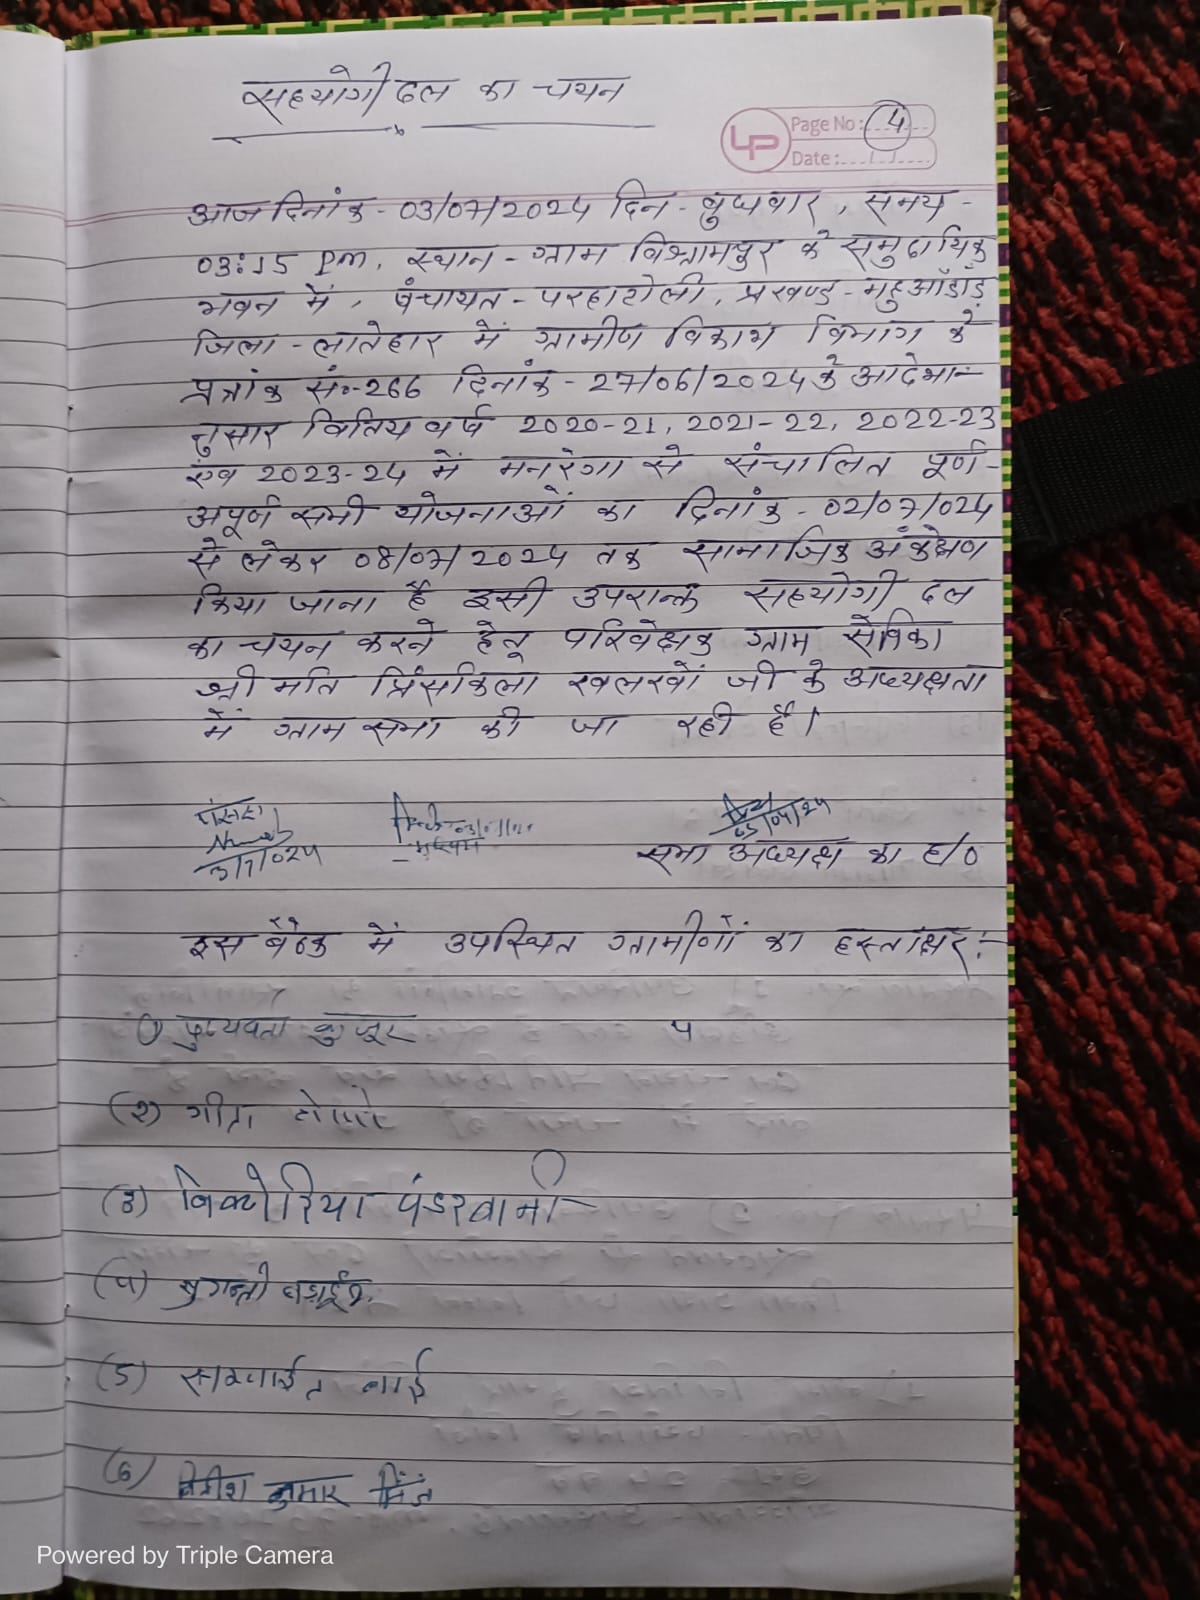 सहयोगी दल का चयन
LP Page No: 4
Date:
आज दिनांक - 03/07/2024 दिन - बुधवार, समय -
03:15 Pm, स्थान - ग्राम विश्रामपुर के समुदायिक
भवन में, पंचायत - परहाटोली, प्रखण्ड - महुआँडाँड़
जिला - लातेहार में ग्रामीण विकाश विभाग के
पत्रांक सं०-266 दिनांक - 27/06/2024 के आदेशा-
नुसार वितिय वर्ष 2020-21, 2021-22, 2022-23
एंव 2023-24 में मनरेगा से संचालित पूर्ण-
अपूर्ण सभी योजनाओं का दिनांक - 02/07/024
से लेकर 08/07/2024 तक सामाजिक अंकेक्षण
किया जाना है इसी उपरान्त सहयोगी दल
का चयन करने हेतू परिवेक्षक ग्राम सेविका
श्रीमति प्रिंसकिला खलखों जी के अध्यक्षता
में ग्राम सभा की जा रही है।
3/7/024
सभा अध्यक्ष का ह/0
इस बैठक में उपस्थित ग्रामीणों का हस्ताक्षर:-
① कुजूर
(2) गीता टोप्पो
(3) विक्टोरिया
(4)
(5) बाई
(6) कुमार मिंज
Powered by Triple Camera